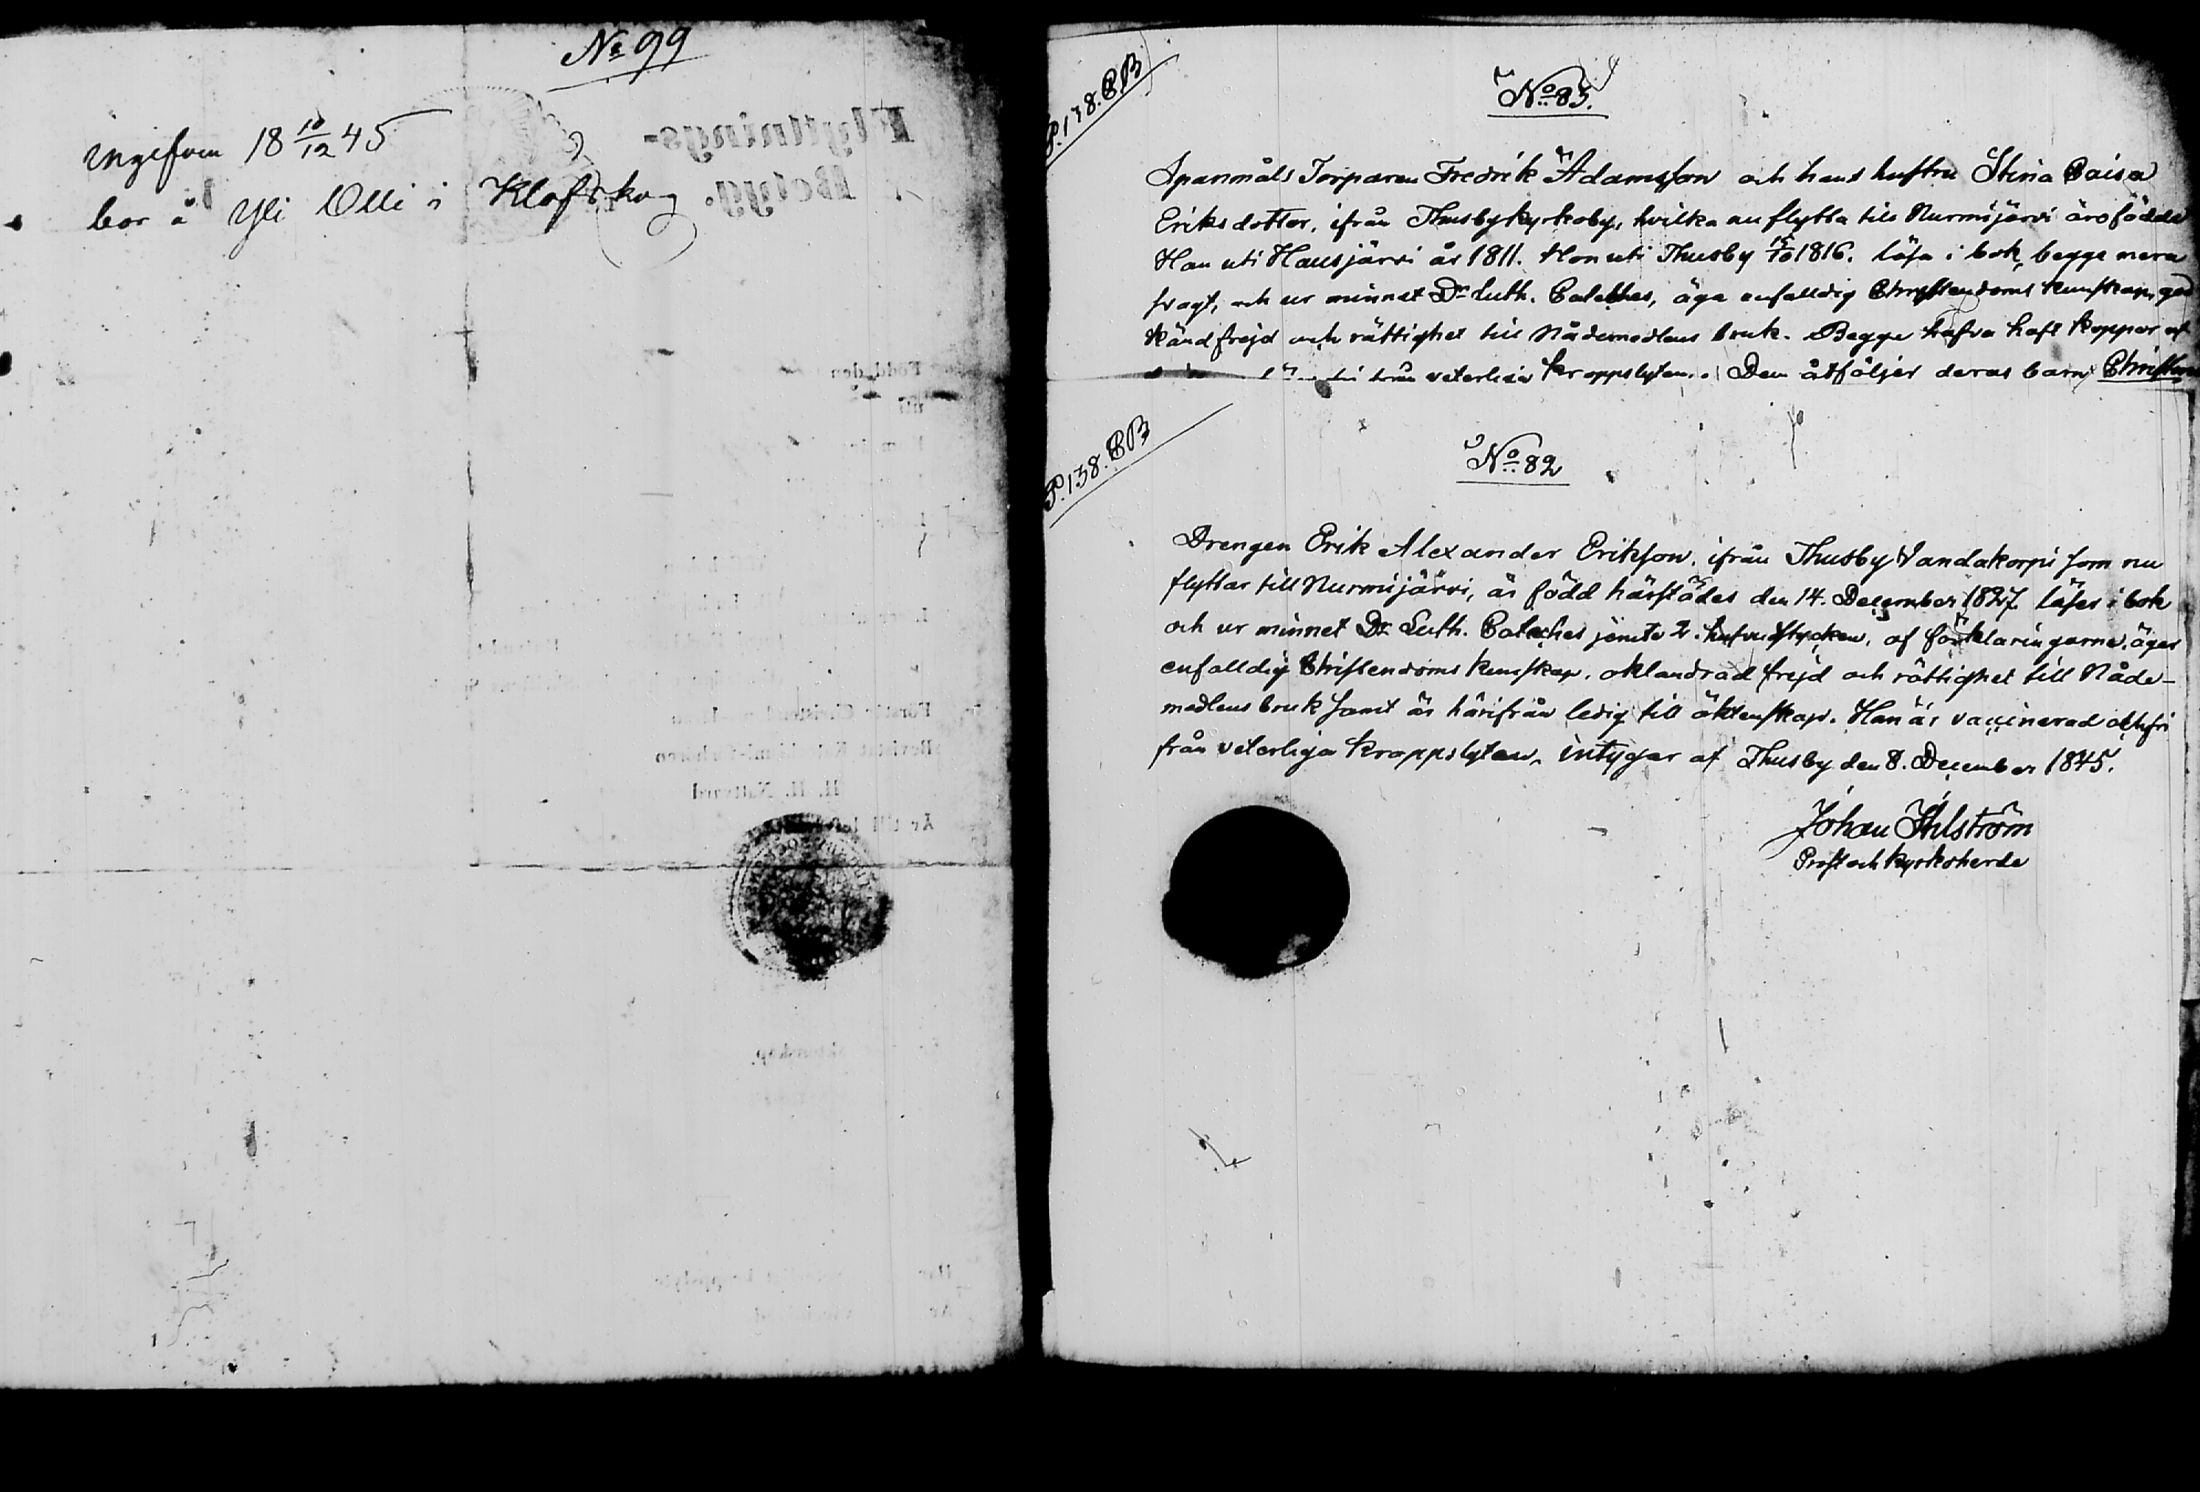 No 99
ingifven 18 10/12 45
bor å Yli Olli i Klöfskog
Flyttnings-
Betyg.
P. 138. CB
No 83.
Spanmåls Torparen Fredrik Adamsson och hans hustru Stina Caisa
Eriksdotter, ifrån Thusby kyrkoby, hvilka nu flytta till Nurmijärvi äro födda
Han uti Hausjärvi år 1811. Hon uti Thusby 1816. läsa i bok, begge mera
svagt, och ur minnet Dr Luth. Cateches, äga enfalldig Christendoms kunskap,
känd frejd och rättighet till Nådemedlens bruk. Begge hafva haft koppor
från veterliga kroppslyten. Dem åtföljer deras barn
P. 138. CB
No 82
Drengen Erik Alexander Eriksson, ifrån Thusby Vandakorpi som nu
flyttar till Nurmijärvi, är född härstädes den 14. December 1827. läser i bok
och ur minnet Dr Luth. Cateches jemte 2. hufvudstycken, af förklaringarne, äger
enfalldig Christendoms kunskap, oklandrad frejd och rättighet till Nåde-
medlens bruk samt är härifrån ledig till äktenskap. Han är vaccinerad och fri
från veterliga kroppslyten, intygar af Thusby den 8. December 1845.
Johan Ahlström
Prost och kyrkoherde